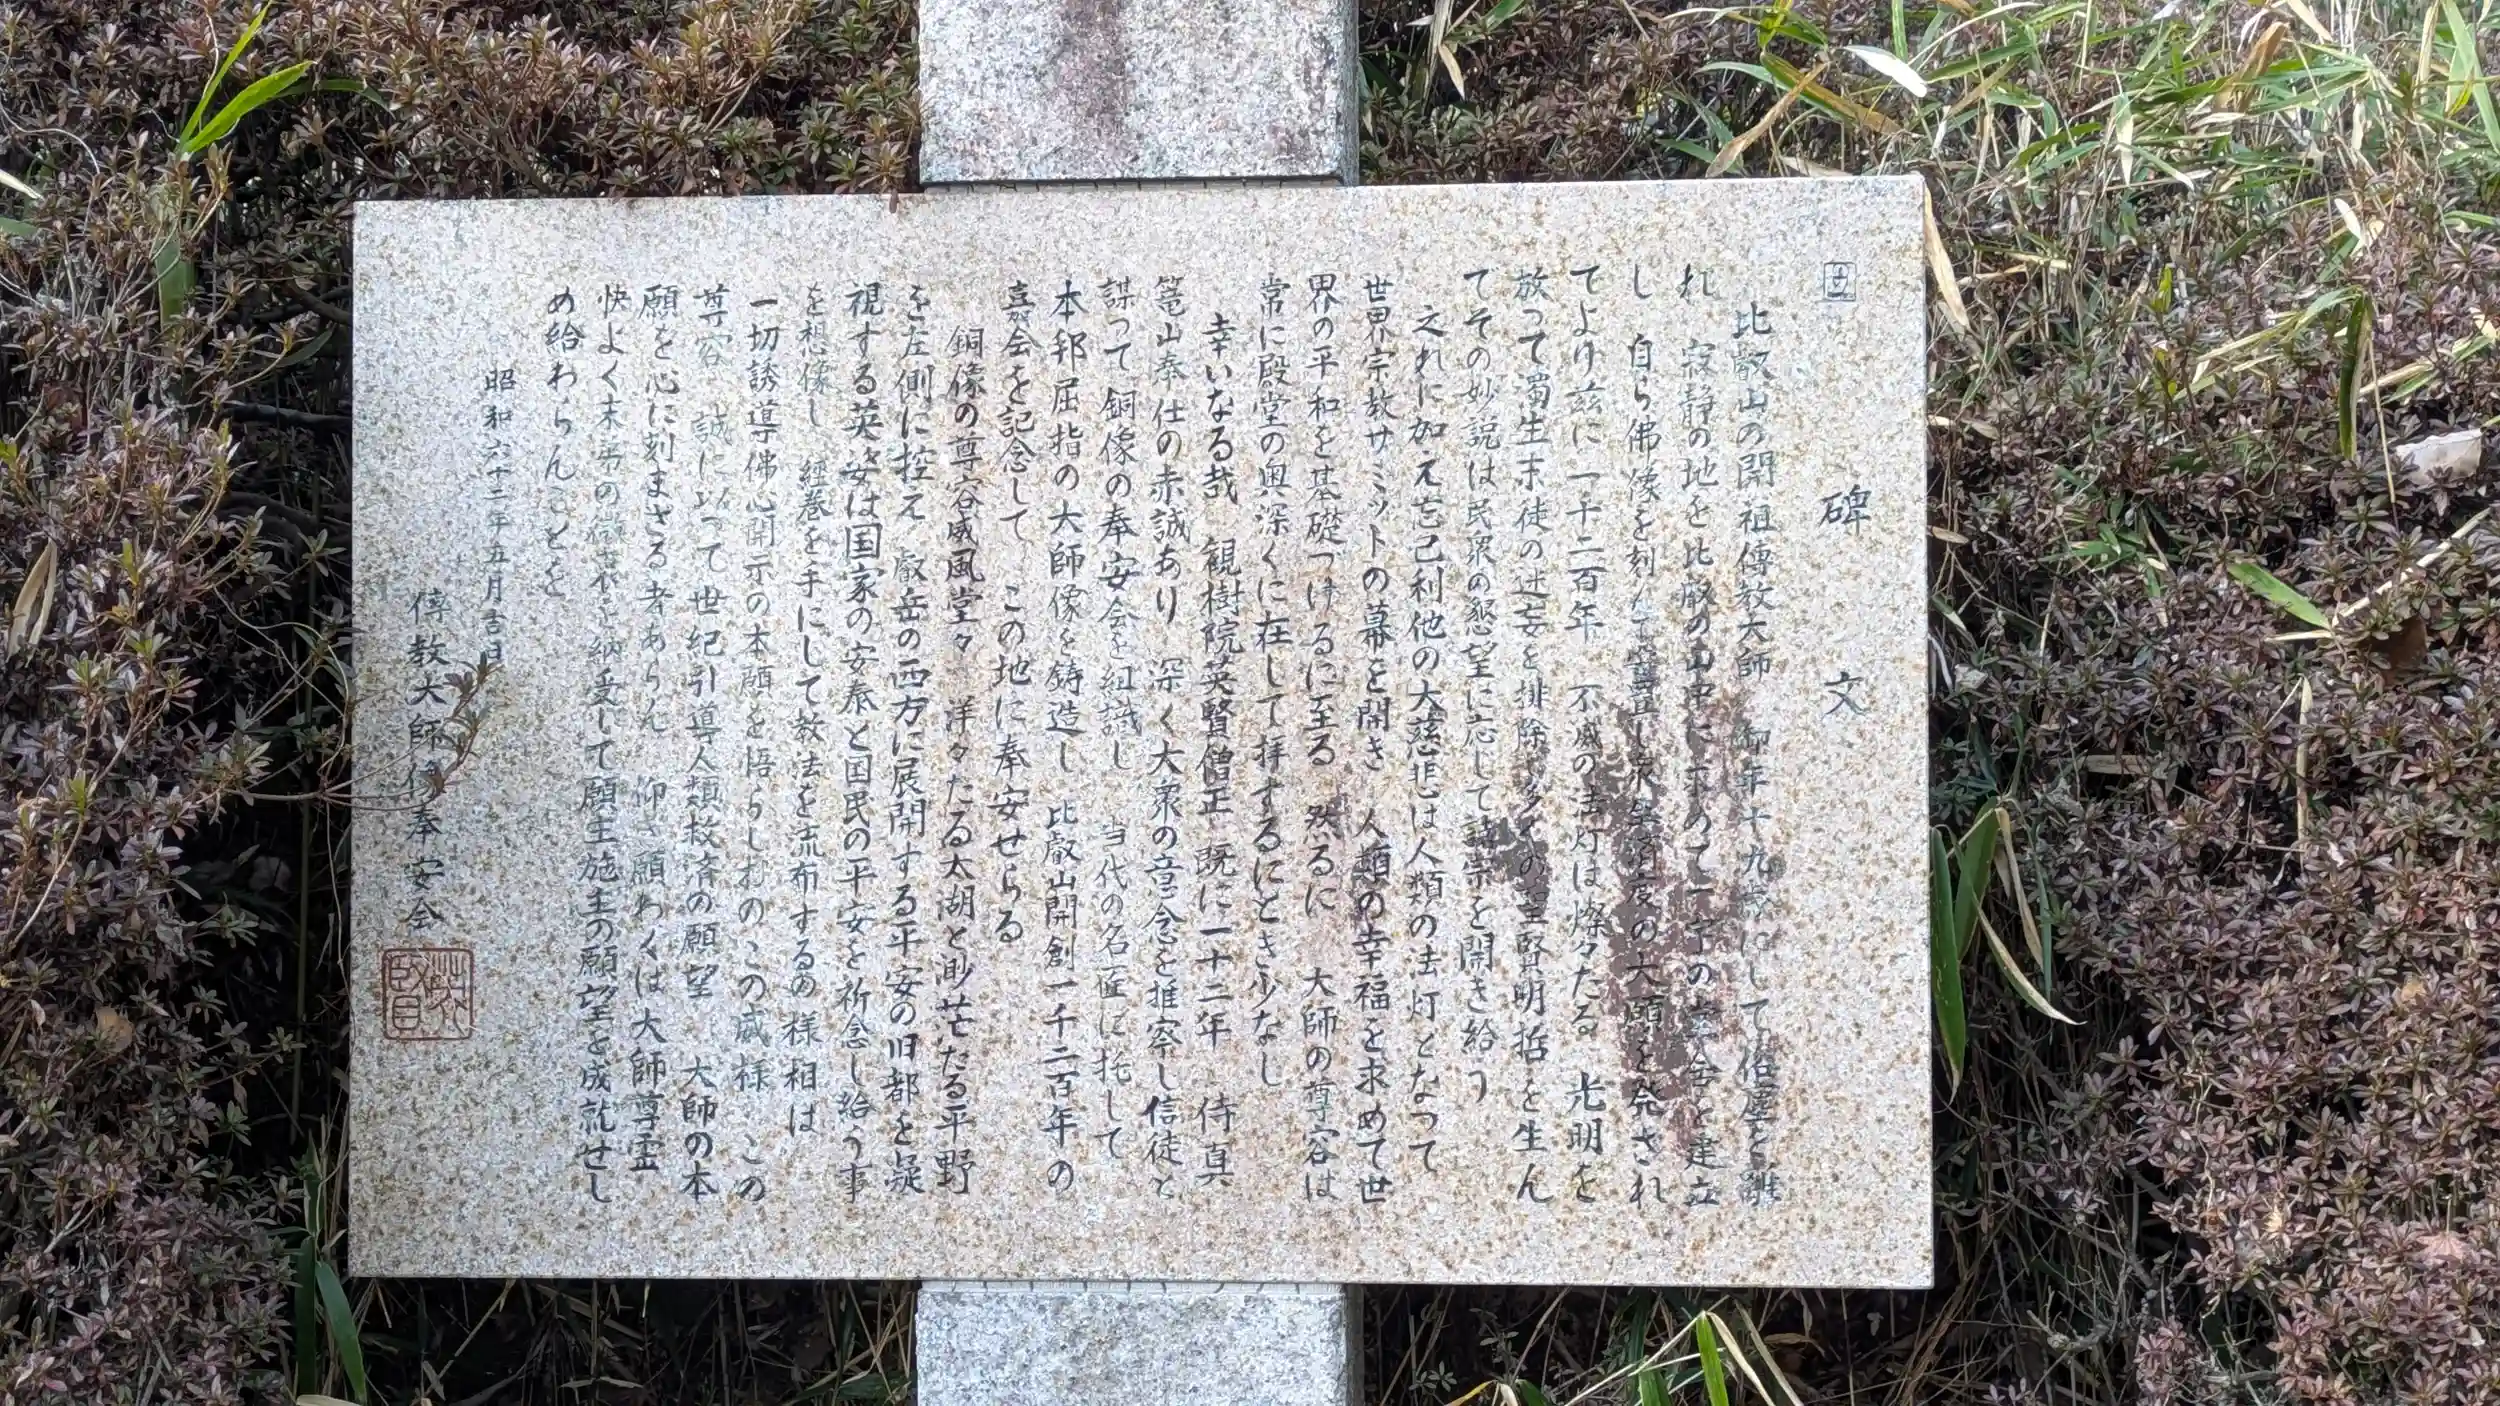 碑文
比叡山の開祖傳教大師 御年十九歳にして俗塵を離
れ 寂静の地を比叡の山中に求めて一宇の草舎を建立
し 自ら佛像を刻んで し衆生済度の大願を発され
てより玆に一千二百年 不滅の法灯は燦々たる 光明を
放って濁生末徒の迷妄を排除 多くの聖賢明哲を生ん
でその妙説は民衆の懇望に応じて諸宗を開き給う
之れに加え忘己利他の大慈悲は人類の法灯となって
世界宗教サミットの幕を開き 人類の幸福を求めて世
界の平和を基礎づけるに至る 然るに 大師の尊容は
常に殿堂の奥深くに在して拝するにとき少なし
幸いなる哉 観樹院英賢僧正 既に一十二年 侍真
篭山奉仕の赤誠あり 深く大衆の意念を推察し信徒と
謀って銅像の奉安会を組識し 当代の名匠に托して
本邦屈指の大師像を鋳造し 比叡山開創一千二百年の
嘉会を記念して この地に奉安せらる
銅像の尊容威風堂々 洋々たる太湖と渺茫たる平野
を左側に控え 叡岳の西方に展開する平安の旧都を凝
視する英姿は国家の安泰と国民の平安を祈念し給う事
を想像し 経巻を手にして教法を流布するの様相は
一切誘導佛心開示の本願を悟らしむの この威様 この
尊容 誠に以って世紀引導人類救済の願望 大師の本
願を心に刻まざる者あらん 仰ぎ願わくは大師尊霊
快よく末弟の を納受して願主施主の願望を成就せし
め給わらんことを
昭和六十二年五月吉日
傳教大師像奉安会